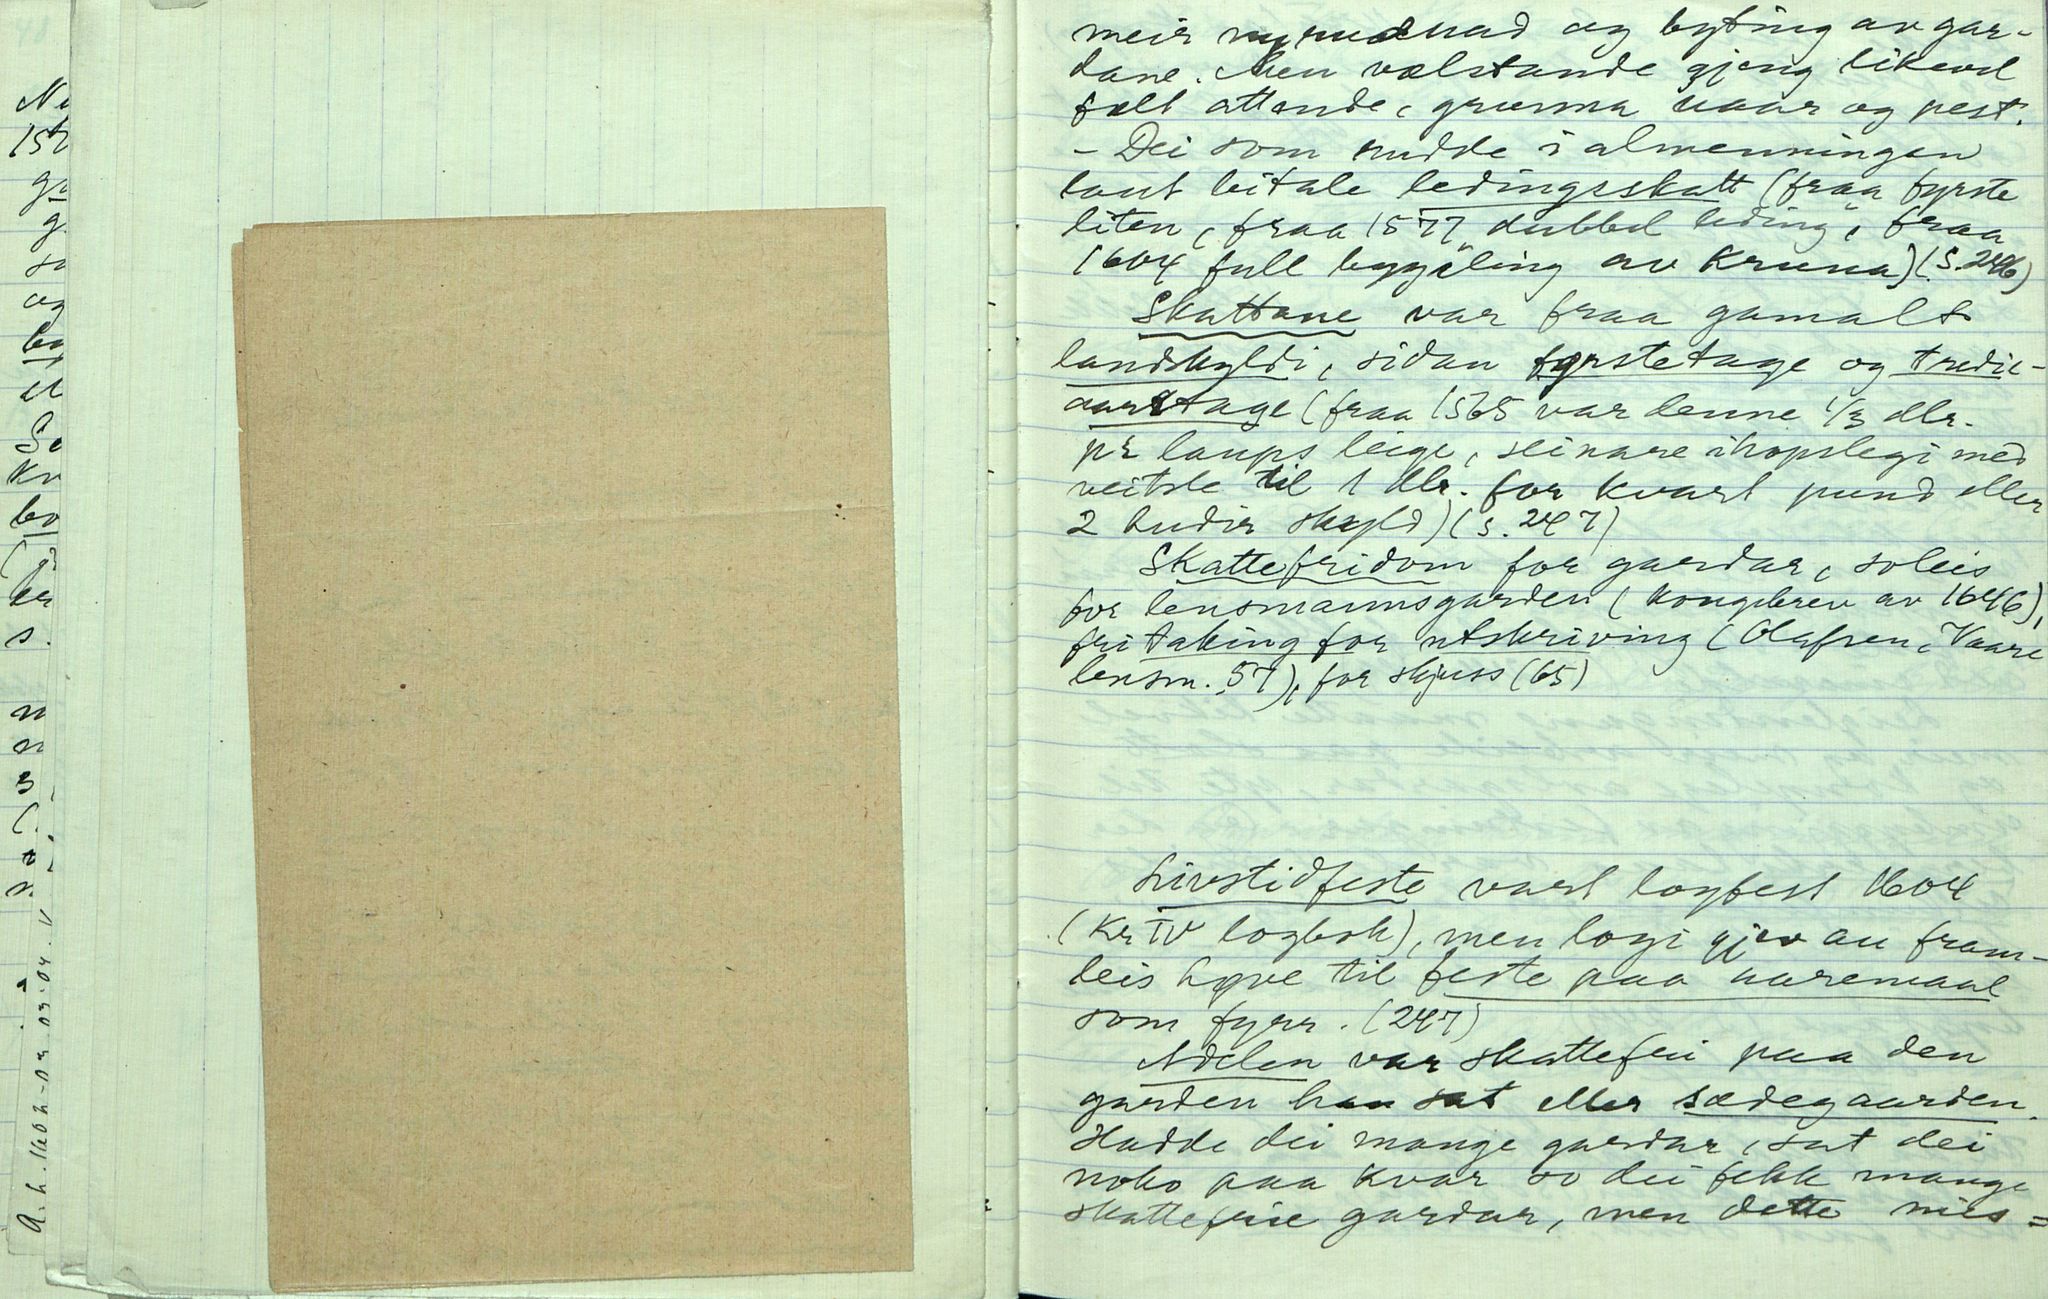 Ni
152
ga
g
g
so
og
bo
el
So
Kr
bo
er
s.
m
n
3
meir nyrudnad og byting av gar-
dane. Men velstande gjeng likevel
fælt attende, grumma uaar og pest.
- Dei som rudde i almenningen
laut beitale ledingsskatt (fraa fyrste
liten, fraa 1577 "dubbel leding", fraa
1604 full bygsling av Kruna) (s. 246)
Skattane var fraa gamalt
landskyldi, sidan fyrstetage og tredie-
aarstage (fraa 1565 var denne 1/3 dlr.
pr laups leige, seinare ihopslegi med
veitsle til 1 dlr. for kvart pund eller
2 hudir skyld) (s. 247)
Skattefridom for gardar, soleis
for lensmannsgarden (kongebrev av 1646),
fritaking for utskriving (Olafsen, Vaare
lensm. 57), for skjuss (65)
Livstidfeste vart logfest 1604
(Kr IV logbok), men logi gjev au fram-
leis høve til feste paa aaremaal
som fyrr. (247)
Adelen var skattefri paa den
garden han sat eller sædegaarden.
Hadde dei mange gardar, sat dei
noko paa kvar so dei fekk mange
skattefrie gardar, men dette mis=